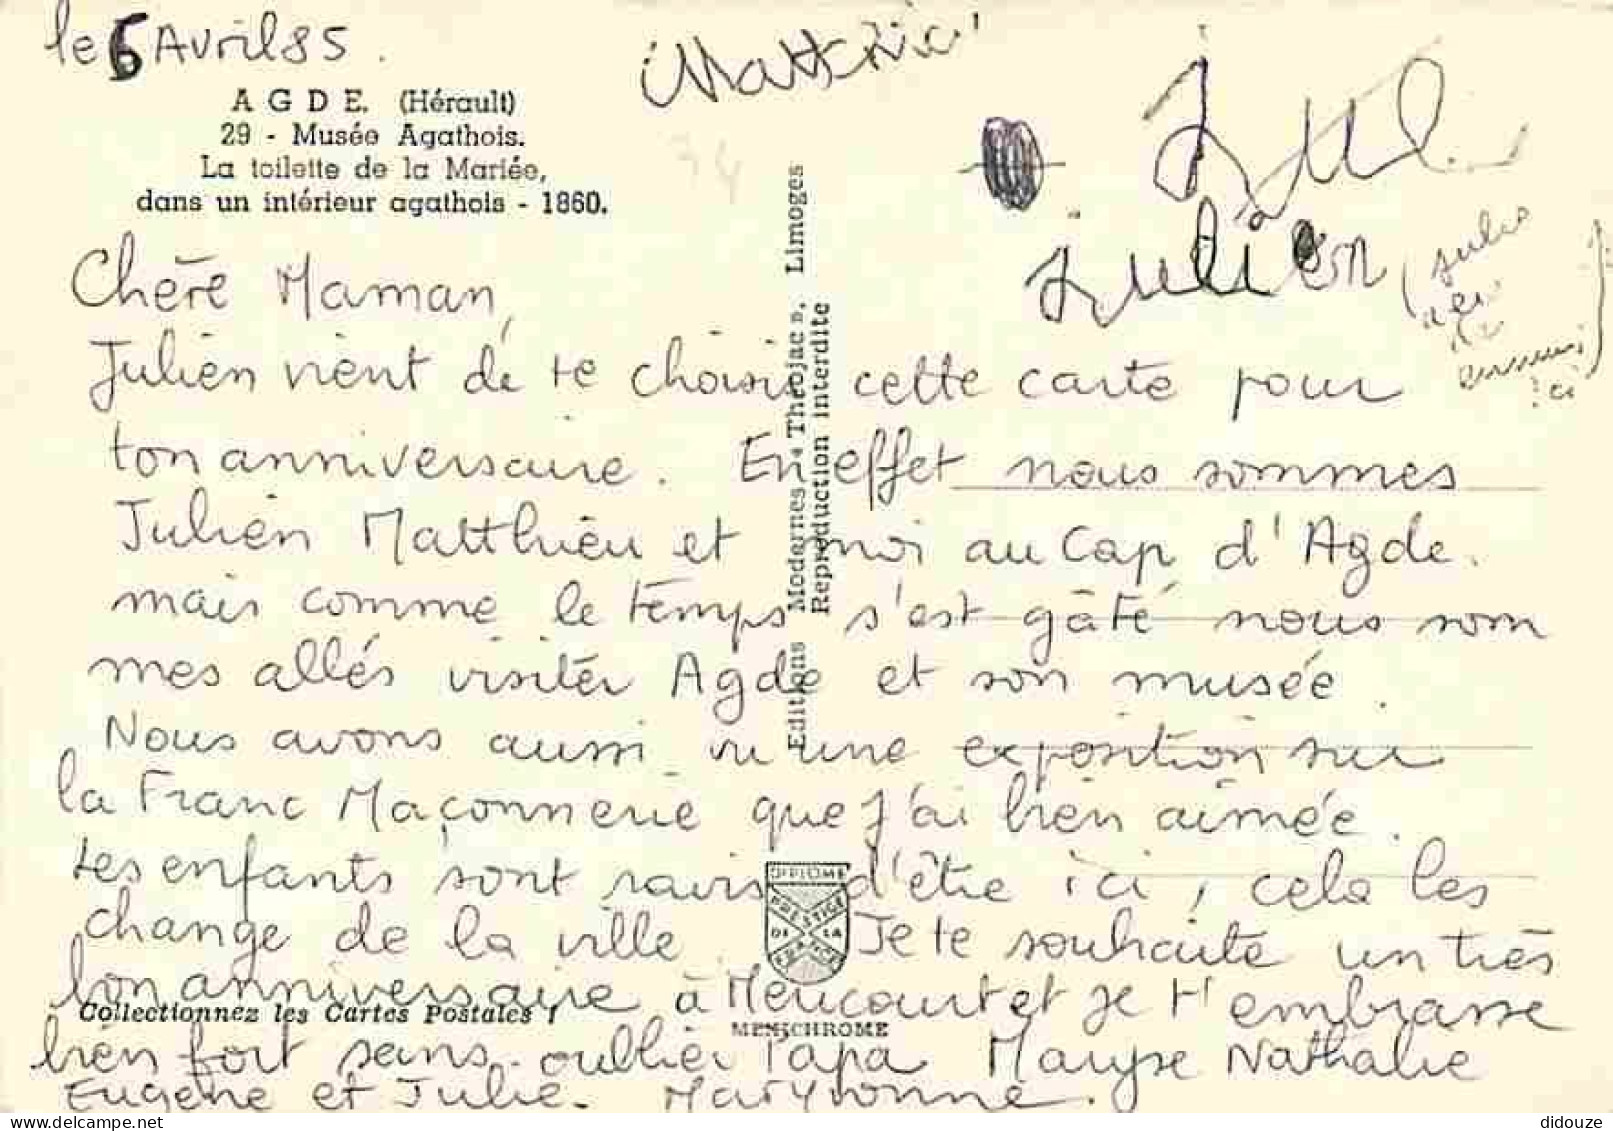 le 6 Avril 85.
AGDE. (Hérault)
29 - Musée Agathois.
La toilette de la Mariée,
dans un intérieur agathois - 1860.
Jul
Julien
(
)
ici
Chère Maman,
Julien vient de te choisir cette carte pour
ton anniversaire. En effet nous sommes
Julien Matthieu et moi au Cap d'Agde.
mais comme le temps s'est gâté nous som
mes allés visiter Agde et son musée.
Nous avons aussi vu une exposition sur
la Franc Maçonnerie que j'ai bien aimée.
Les enfants sont ravis d'être ici, cela les
change de la ville. Je te souhaite un très
bon anniversaire à Mericourt et je t'embrasse
bien fort sans oublier Papa Maryse Nathalie
Eugène et Julie. Maryvonne.
Editions Modernes Théojac, Limoges
Reproduction interdite
DIPLOME
PRESTIGE
DE LA
FRANCE
Collectionnez les Cartes Postales !
MEXICHROME
didouze
delcampe.net